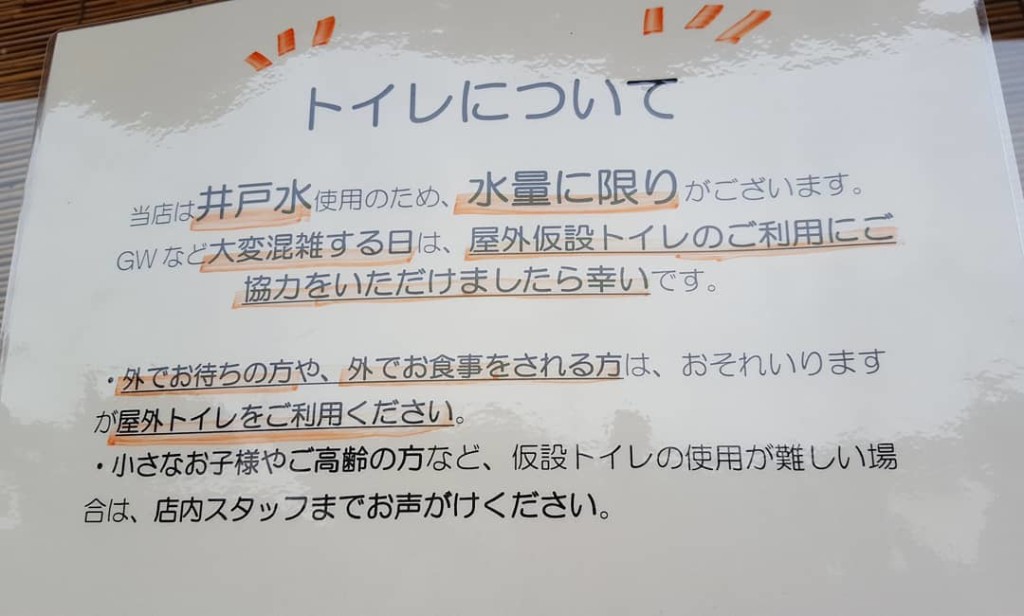 トイレについて
当店は井戸水使用のため、水量に限りがございます。
GWなど大変混雑する日は、屋外仮設トイレのご利用にご
協力をいただけましたら幸いです。
・外でお待ちの方や、外でお食事をされる方は、おそれいります
が屋外トイレをご利用ください。
・小さなお子様やご高齢の方など、仮設トイレの使用が難しい場
合は、店内スタッフまでお声がけください。